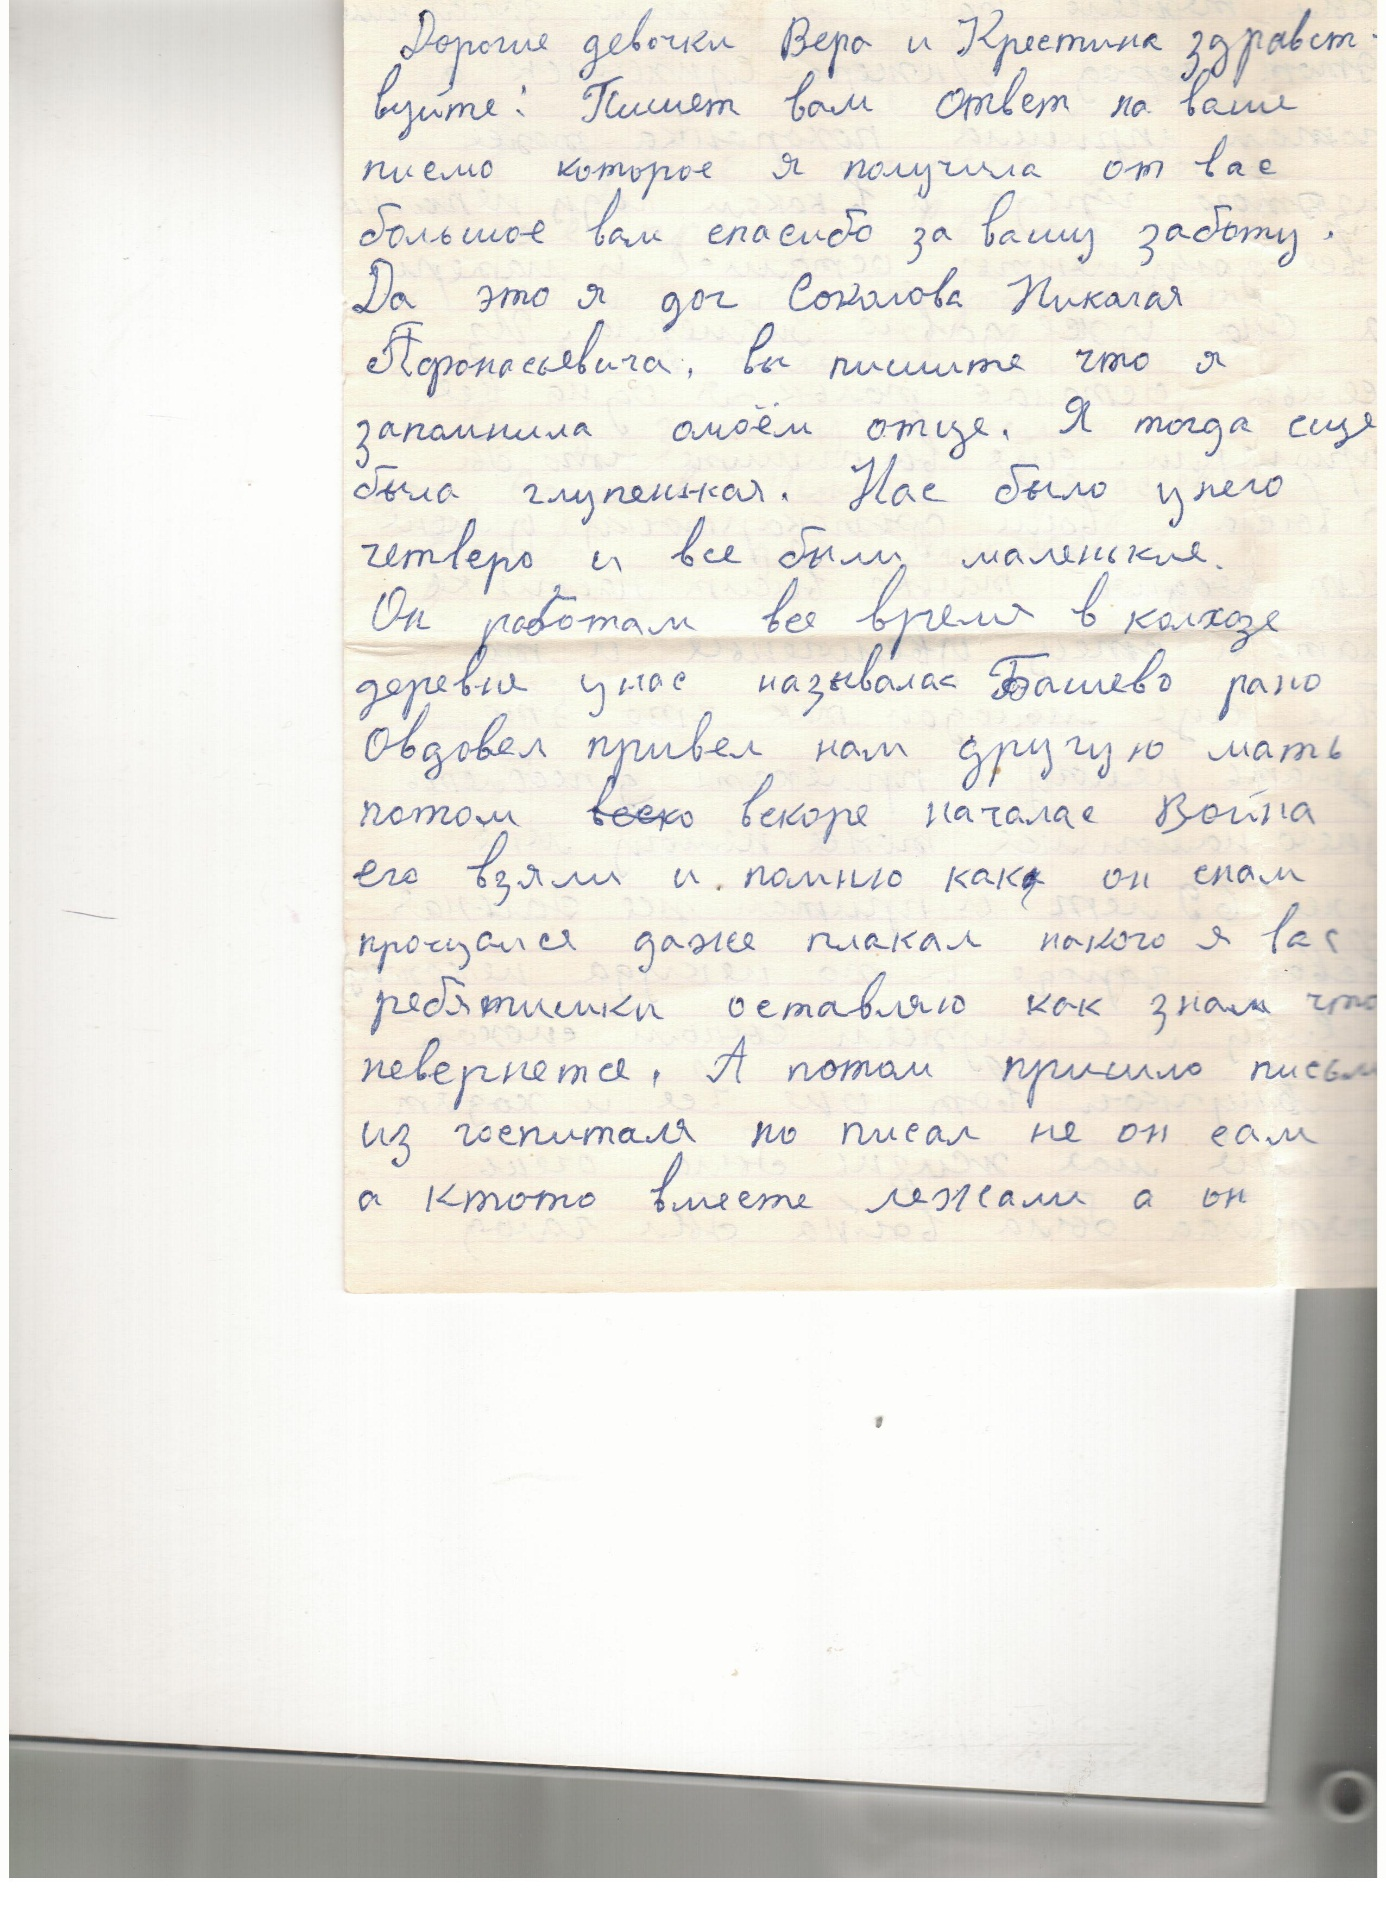 Дорогие девочки Вера и Крестина здравст-
вуйте! Пишет вам ответ на ваше
писмо которое я получила от вас
большое вам спасибо за вашу заботу.
Да это я доч Соколова Никалая
Афонасьевича, вы пишите что я
запомнила омоём отце. Я тогда еще
была глупенькая. Нас было унего
четверо и все были маленькие.
Он работал все время в колхозе
деревне унас называлас Башево рано
Овдовел привел нам другую мать
потом вско вскоре началас Война
его взяли и помню как он снам
прощался даже плакал накого я вас
ребятишки оставляю как знал что
невернется. А потом пришло письмо
из госпиталя но писал не он сам
а ктото вместе лежали а он